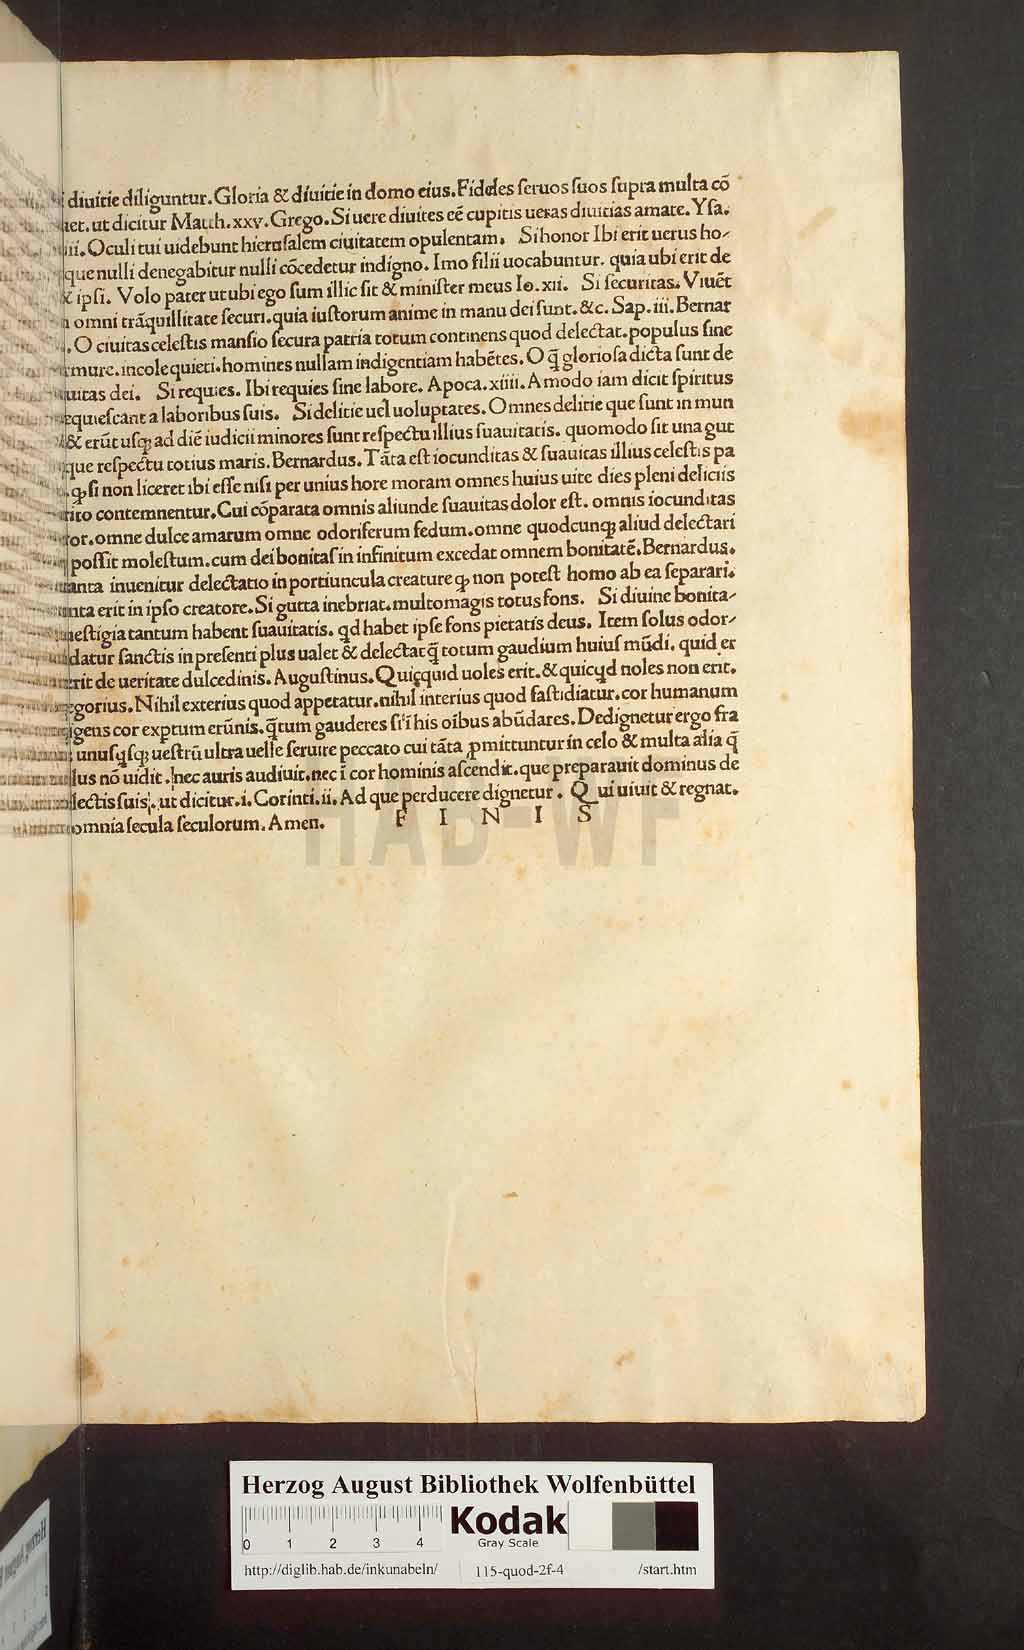 diuitie diliguntur. Gloria & diuitie in domo eius. Fideles seruos suos supra multa cō
uet. ut dicitur Math. xxv. Grego. Si uere diuites eē cupitis ueras diuitias amate. Ysa.
iii. Oculi tui uidebunt hierusalem ciuitatem opulentam. Si honor Ibi erit uerus ho-
que nulli denegabitur nulli cōcedetur indigno. Imo filii uocabuntur. quia ubi erit de
& ipsi. Volo pater ut ubi ego sum illic sit & minister meus Io. xii. Si securitas. Viuēt
omni trāquillitate securi. quia iustorum anime in manu dei sunt. &c. Sap. iii. Bernar
. O ciuitas celestis mansio secura patria totum continens quod delectat. populus sine
mure. incole quieti. homines nullam indigentiam habētes. O q̄ gloriosa dicta sunt de
uitas dei. Si requies. Ibi requies sine labore. Apoca. xiiii. Amodo iam dicit spiritus
equiescant a laboribus suis. Si delitie uel uoluptates. Omnes delitie que sunt in mun
& erūt usqꝫ ad diē iudicii minores sunt respectu illius suauitatis. quomodo sit una gut
que respectu totius maris. Bernardus. Tāta est iocunditas & suauitas illius celestis pa
. qꝫ si non liceret ibi esse nisi per unius hore moram omnes huius uite dies pleni deliciis
rito contemnentur. Cui cōparata omnis aliunde suauitas dolor est. omnis iocunditas
or. omne dulce amarum omne odoriferum fedum. omne quodcunqꝫ aliud delectari
possit molestum. cum dei bonitas in infinitum excedat omnem bonitatē. Bernardus.
anta inuenitur delectatio in portiuncula creature qꝫ non potest homo ab ea separari.
nta erit in ipso creatore. Si gutta inebriat. multomagis totus fons. Si diuine bonita-
uestigia tantum habent suauitatis. qd habet ipse fons pietatis deus. Item solus odor-
datur sanctis in presenti plus ualet & delectat q̄ totum gaudium huius mūdi. quid er
erit de ueritate dulcedinis. Augustinus. Quicquid uoles erit. & quicqd noles non erit.
egorius. Nihil exterius quod appetatur. nihil interius quod fastidiatur. cor humanum
igens cor exptum erūnis. q̄tum gauderes si ī his oībus abūdares. Dedignetur ergo fra
unusqsqꝫ uestrū ultra uelle seruire peccato cui tāta ꝓmittuntur in celo & multa alia q̄
lus nō uidit. nec auris audiuit. nec ī cor hominis ascendit. que preparauit dominus de
lectis suis. ut dicitur. i. Corinti. ii. Ad que perducere dignetur. Qui uiuit & regnat.
omnia secula seculorum. Amen. F I N I S
HAB-WF
Herzog August Bibliothek Wolfenbüttel
0 1 2 3 4 Kodak
Gray Scale
http://diglib.hab.de/inkunabeln/ 115-quod-2f-4 /start.htm